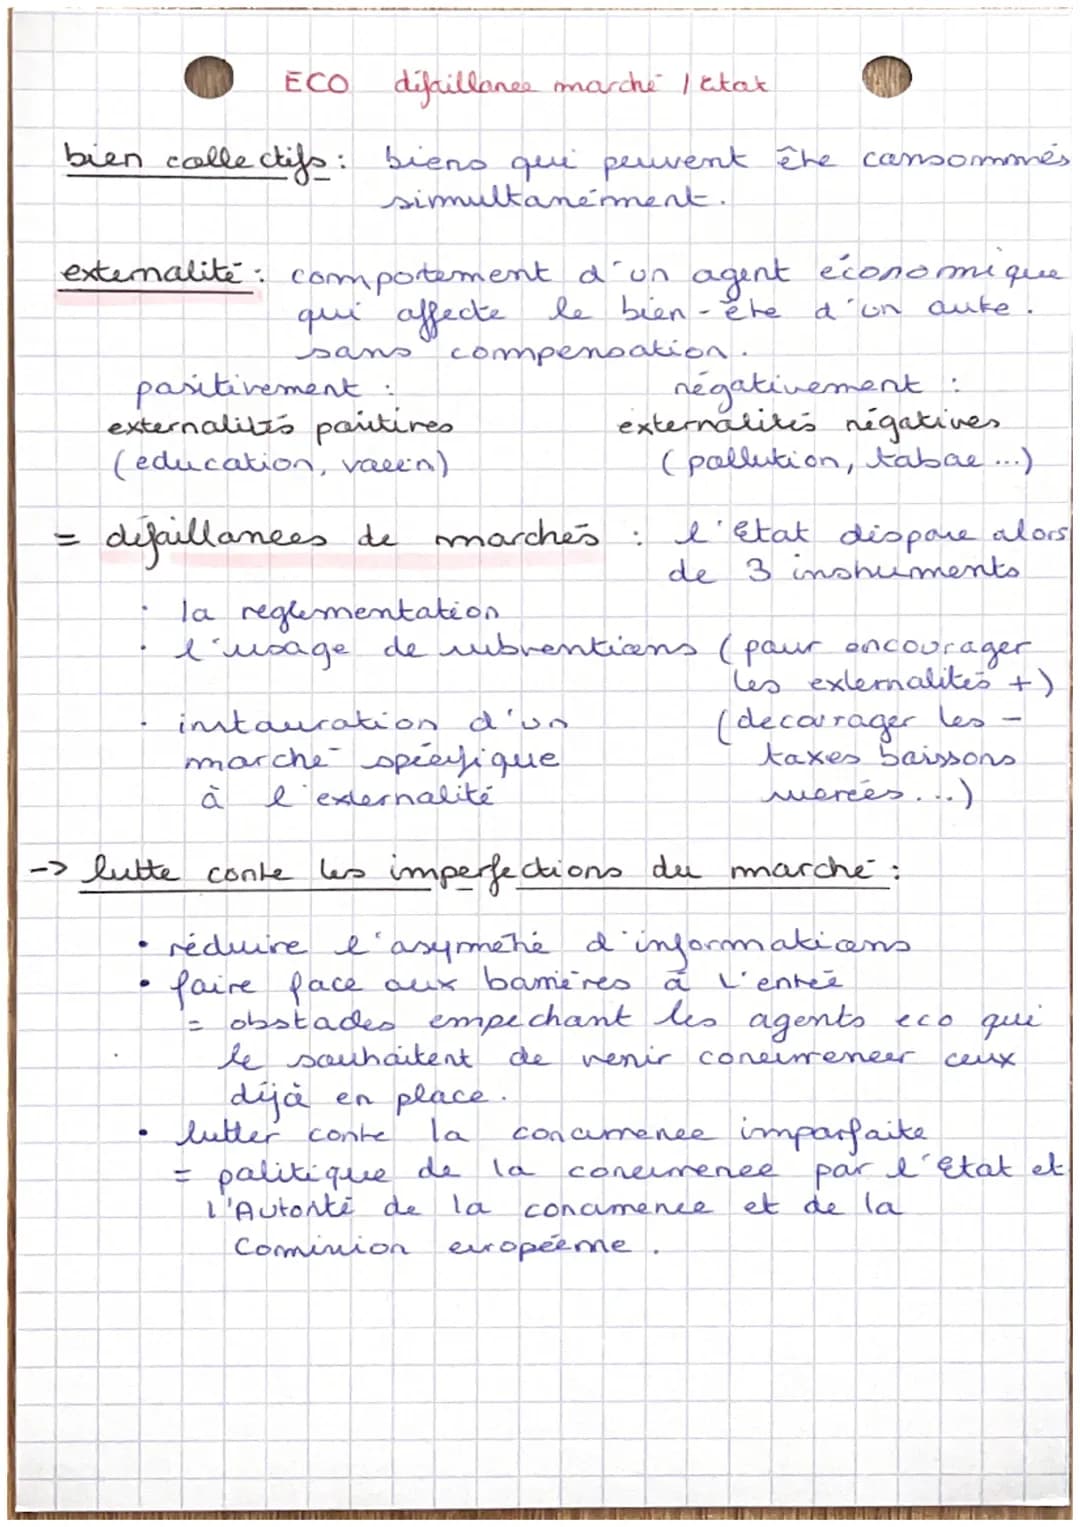 ECO défaillance marché / Etat
bien collectifs : biens qui peuvent être consommés
simultanément.
externalité : comportement d'un agent économique
qui affecte le bien-être d'un autre.
sans compensation.
positivement : négativement :
externalités positives externalités négatives
(education, vaccin) (pollution, tabac ...)
= défaillances de marchés : l'Etat dispose alors
de 3 instruments
· la reglementation
· l'usage de subventions (pour encourager
les externalités +)
· instauration d'un (decourager les -
marché spécifique taxes baissons
à l'externalité sucrées...)
-> lutte contre les imperfections du marché :
• réduire l'asymétrie d'informations
• faire face aux barrières à l'entrée
= obstacles empechant les agents eco qui
le souhaitent de venir concurrencer ceux
déjà en place.
• lutter contre la concurrence imparfaite
= politique de la concurrence par l'Etat et
l'Autorité de la concurrence et de la
Commission européenne.